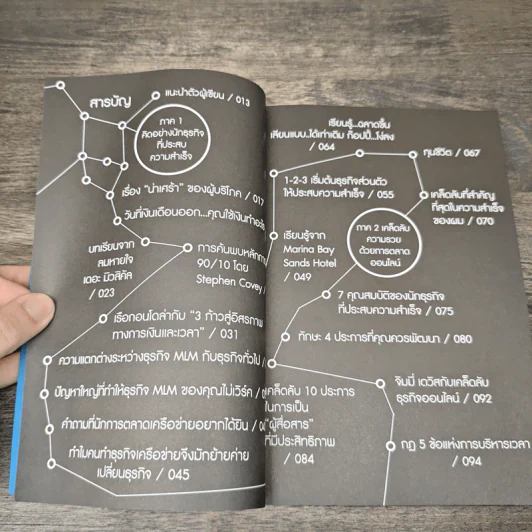 สารบัญ
แนะนำตัวผู้เขียน / 013
ภาค 1
คิดอย่างนักธุรกิจ
ที่ประสบ
ความสำเร็จ
เรื่อง "น่าเศร้า" ของผู้บริโภค / 017
วันที่เงินเดือนออก...คุณใช้เงินทำอะไร
บทเรียนจาก
ลมหายใจ
เดอะ มิวสิคัล
/ 023
การค้นพบหลักการ
90/10 โดย
Stephen Covey /
เรือกอนโดล่ากับ "3 ก้าวสู่อิสรภาพ
ทางการเงินและเวลา" / 031
ความแตกต่างระหว่างธุรกิจ MLM กับธุรกิจทั่วไป /
ปัญหาใหญ่ที่ทำให้ธุรกิจ MLM ของคุณไม่เวิร์ค /
คำถามที่นักการตลาดเครือข่ายอยากได้ยิน /
ทำไมคนทำธุรกิจเครือข่ายจึงมักย้ายค่าย
เปลี่ยนธุรกิจ / 045
เรียนรู้...ฉลาดขึ้น
เลียนแบบ..ได้เท่าเดิม ก๊อปปี้...โง่ลง
/ 064
กุนชีวิต / 067
1-2-3 เริ่มต้นธุรกิจส่วนตัว
ให้ประสบความสำเร็จ / 055
เคล็ดลับที่สำคัญ
ที่สุดในความสำเร็จ
ของผม / 070
ภาค 2 เคล็ดลับ
ความรวย
ด้วยการตลาด
ออนไลน์
เรียนรู้จาก
Marina Bay
Sands Hotel
/ 049
7 คุณสมบัติของนักธุรกิจ
ที่ประสบความสำเร็จ / 075
ทักษะ 4 ประการที่คุณควรพัฒนา / 080
จิมมี่ เดวิสกับเคล็ดลับ
ธุรกิจออนไลน์ / 092
เคล็ดลับ 10 ประการ
ในการเป็น
"ผู้สื่อสาร"
ที่มีประสิทธิภาพ
/ 084
กฎ 5 ข้อแห่งการบริหารเวลา
/ 094